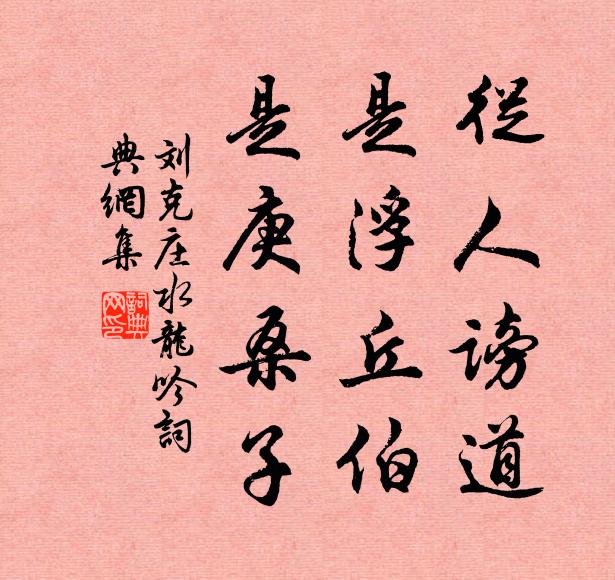 從人謗道
是浮丘伯
是庚桑子
刘克庄水龍吟詞
典網集
詞典網印